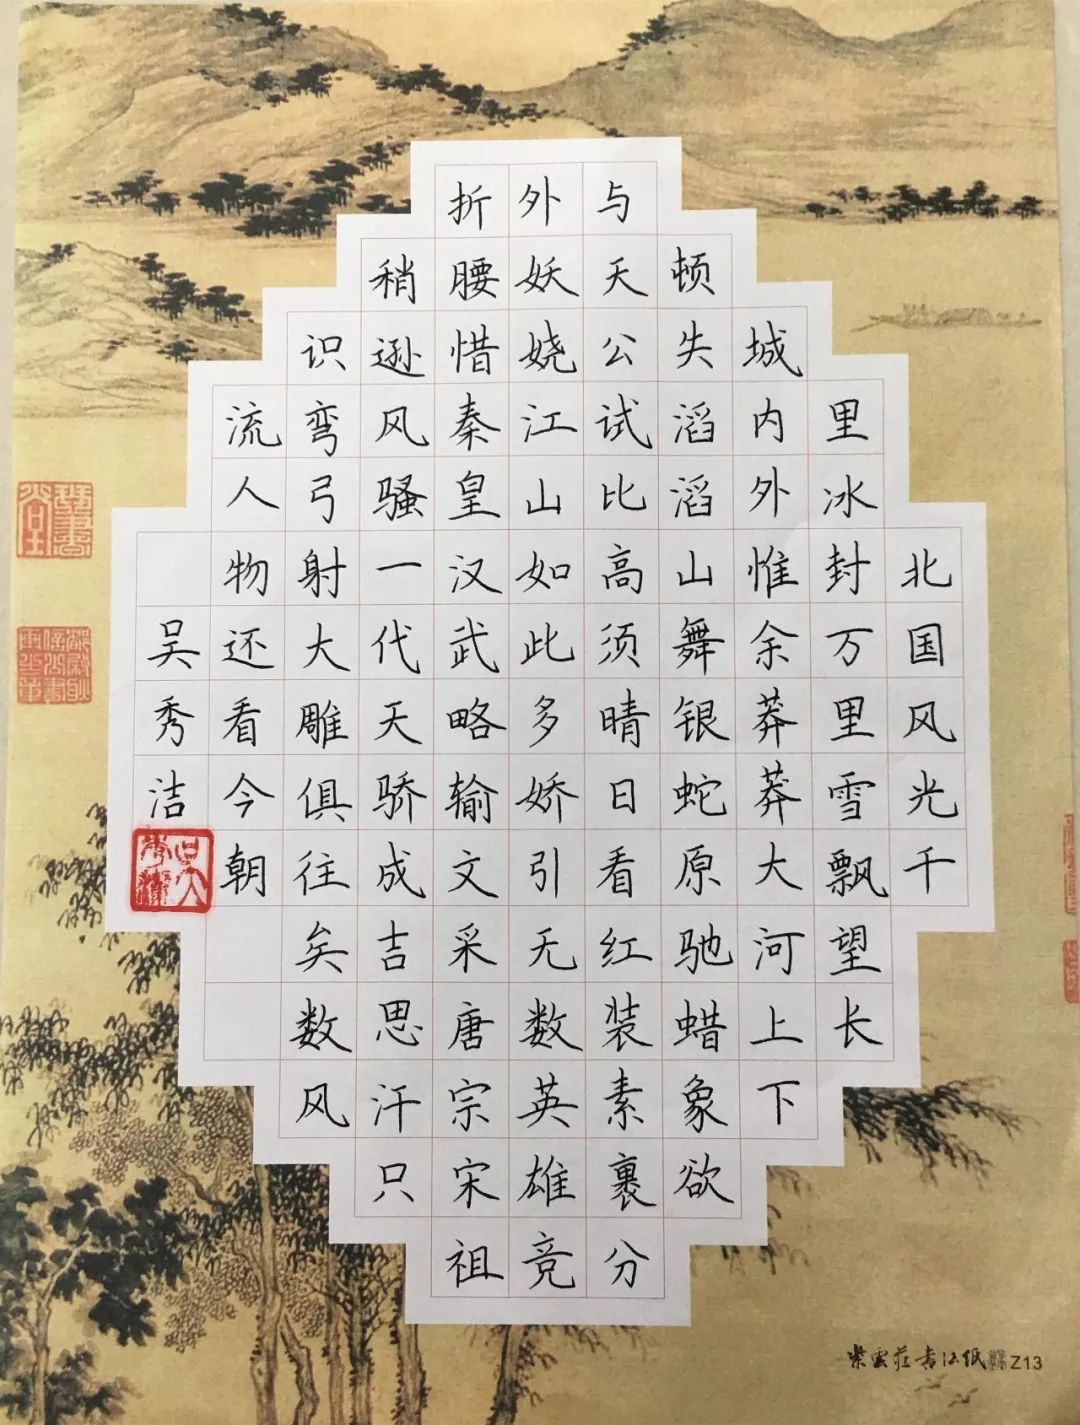 北国风光千
里冰封万里雪飘望长
城内外惟余莽莽大河上下
顿失滔滔山舞银蛇原驰蜡象欲
与天公试比高须晴日看红装素裹分
外妖娆江山如此多娇引无数英雄竞
折腰惜秦皇汉武略输文采唐宗宋祖
稍逊风骚一代天骄成吉思汗只
识弯弓射大雕俱往矣数风
流人物还看今朝
吴秀洁
紫云莊书法纸 Z13